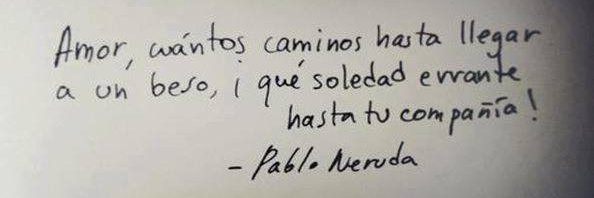 Amor, cuántos caminos hasta llegar
a un beso, ¡ qué soledad errante
hasta tu compañía!
- Pablo Neruda